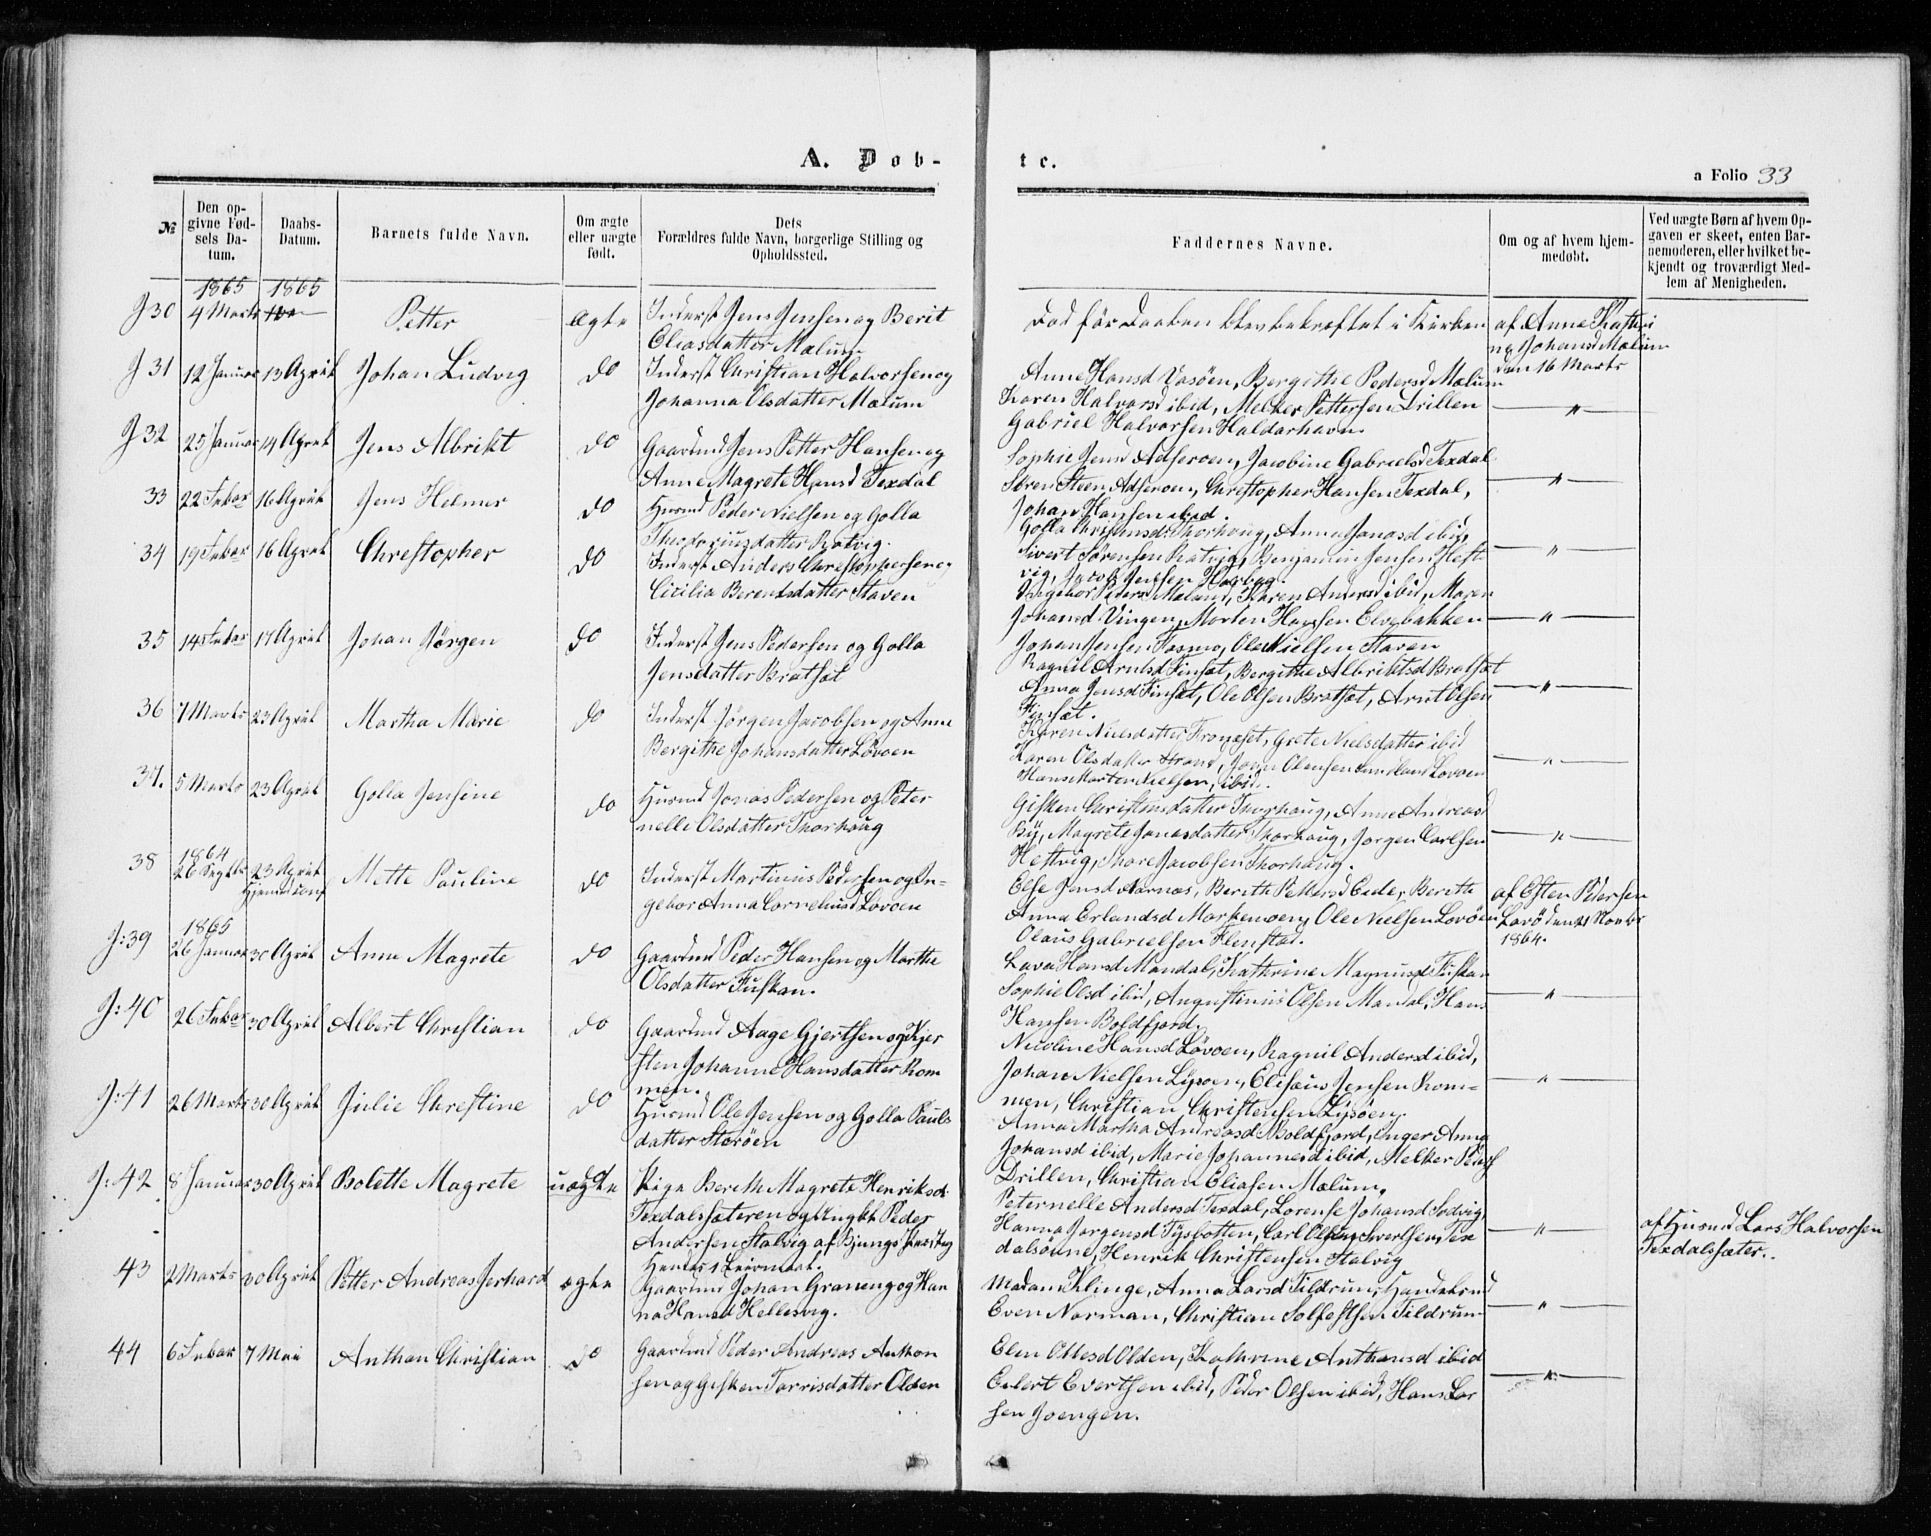 A. Døb-
te.
a Folio 33
№
Den op-
givne Fød-
sels Da-
tum.
Daabs-
Datum.
Barnets fulde Navn.
Om ægte
eller uægte
født.
Dets
Forældres fulde Navn, borgerlige Stilling og
Opholdssted.
Faddernes Navne.
Om og af hvem hjem-
medøbt.
Ved uægte Børn af hvem Op-
gaven er skeet, enten Bar-
nemoderen, eller hvilket be-
kjendt og troværdigt Med-
lem af Menigheden.
1865 1865
J 30 4 Marts Petter Ægte Inderst Jens Jensen og Berit
Eliasdatter Mælum
Død før Daaben blev bekræftet i Kirken
af Anne Kathri
ne Johansd Mælum
den 16 Marts
J 31 12 Januar 13 April Johan Ludvig do Inderst Christian Halvorsen og
Johanna Olsdatter Mælum
Anne Hansd Vasöen, Bergithe Pedersd Mælum
Karen Halvorsd ibid, Melker Pettersen Drillen
Gabriel Halvorsen Haldarhavn.
"
J 32 25 Januar 14 April Jens Albrikt do Gaardmd Jens Petter Hansen og
Anne Magrete Hansd Texdal
Sophie Jensd Adseroen, Jacobine Gabrielsd Texdal
Søren Steen Adseroen, Christopher Hansen Texdal,
Johan Hansen ibid.
"
33 22 Febar 16 April Jens Helmer do Husmd Peder Nielsen og Golla
Theodoriusdatter Ratvig.
Golla Christensd Thorhaug, Anne Jonasd ibid,
Sivert Sørensen Ratvig, Benjamin Jensen Heft
vig, Jacob Jensen Harbag.
"
34 19 Febar 16 April Christopher do Inderst Anders Christophersen og
Cicilia Berentsdatter Staven
Ingebor Pedersd Mæland, Karen Andersd ibid, Maren
Johansd Vingen, Morten Hansen Elvebakken
Johan Jensen Fasmo, Ole Nielsen Staven
"
35 14 Febar 17 April Johan Jørgen do Inderst Jens Pedersen og Golla
Jensdatter Bratsæt
Ragnil Arntsd Finsæt, Bergithe Albriktsd Bratsæt
Anna Jensd Finsæt, Ole Olsen Bratsæt, Arnt Olsen
Finsæt.
"
36 7 Marts 23 April Martha Marie do Inderst Jørgen Jacobsen og Anne
Bergithe Johansdatter Lövoen
Karen Nielsdatter Fronæset, Grete Nielsdatter ibid
Karen Olsdatter Strand, Joen Olausen Lövoen
Hans Morten Nielsen, ibid.
"
37. 5 Marts 23 April Golla Jensine do Husmd Jonas Pedersen og Peter
nelle Olsdatter Thorhaug
Gisken Christensdatter Thorhaug, Anne Andreasd
By, Magrete Jonasdatter Thorhaug, Jørgen Carlsen
Heftvig, Thore Jacobsen Thorhaug.
"
38 1864
26 Septbr 23 April
Mette Pauline do Inderst Martinus Pedersen og In-
gebor Anna Corneliusd Lövoen
Else Jensd Narnæs, Bereth Pettersd Eide, Bereth
Anna Erlandsd Morkemoen, Ole Nielsen Lovöen
Olaus Gabrielsen Flenstad.
af Esten Pedersen
1864.
1865
J:39 26 Januar 30 April Anne Magrete do Gaardmd Peder Hansen og Marthe
Olsdatter Fuskan.
Lava Hansd Mandal, Kathrine Magnusd Fuskan
Sophie Olsd ibid, Augustinius Olsen Mandal, Hans
Hansen Boldfjord.
"
J:40 26 Febar 30 April Albert Christian do Gaardmd Aage Gjertsen og Kjer
sten Johanne Hansdatter Rom
men.
Nicoline Hansd Lövoen, Ragnil Andersd ibid,
Johan Nielsen Lysoen, Elisæus Jensen Rom-
men, Christian Christensen Lysöen.
"
J:41 26 Marts 30 April Julie Christine do Husmd Ole Jensen og Golla Pauls
datter Storöen
Anna Martha Andreasd Boldfjord, Inger Anna
Johansd ibid, Marie Johannesd ibid, Melker
Drillen, Christian Eliasen Mælum.
J:42 8 Januar 30 April Bolette Magrete uægte Pige Bereth Magrete Henriksd
Texdalssæteren og Ungkl Peder
Andersen Stalvig af Bjungs Præsteg
Hendes 1 Leiermaal.
Peternelle Andersd Texdal, Lorense Johansd Sodvig,
Hanna Jørgensd Tysbotten, Carl Olsen Texdals
Henrik Christensen Stalvig
"
af Husmd Lars Halvorsen
Texdalsæter.
43 2 Marts 30 April Petter Andreas Gerhard ægte Gaardmd Johan Graneng og Han
na Hansd Hellesvig.
Madam Klinge, Anna Larsd Tildrum, Handelsmd
Even Norman, Christian Solfestsen Tildrum
"
44 6 Febar 7 Mai Anthon Christian do Gaardmd Peder Andreas Anthon
sen og Gisken Torrisdatter Olden
Elen Ottesd Olden, Kathrine Anthonsd ibid
Eelert Evertsen ibid, Peder Olsen ibid, Hans Lar
sen Joengen.
"